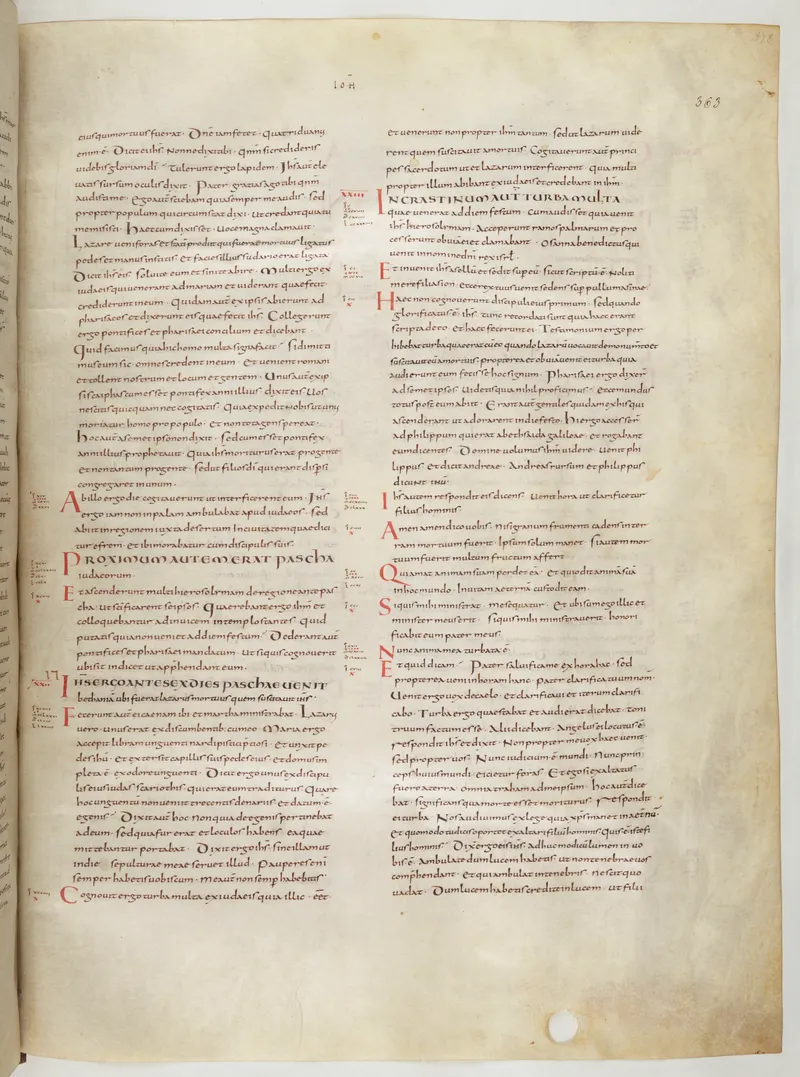 IOH
363
eius qui mortuus fuerat · Dñe iam fetet · quatriduanus
enim ē · Dicit ei ihs · Nonne dixi tibi · qnm si credideris
uidebis gloriam di · Tulerunt ergo lapidem · Ihs aut ele
uatis sursum oculis dixit · Pater gratias ago tibi qnm
audisti me · ego aut sciebam quia semper me audis · sed
propter populum qui circumstat dixi · ut credant quia tu
me misisti · Haec cum dixisset · uoce magna clamauit ·
Lazare ueni foras et prodiit qui fuerat mortuus ligatus
pedes et manus institis · et facies illius sudario erat ligata
Dicit ihs eis · soluite eum et sinite abire · Multi ergo ex
iudaeis qui uenerant ad mariam et uiderant quae fecit
crediderunt in eum · Quidam aut ex ipsis abierunt ad
phariseos et dixerunt eis quae fecit ihs · Collegerunt
ergo pontifices et pharisaei concilium et dicebant ·
Quid facimus quia hic homo multa signa facit · Si dimitti
mus eum sic · omnes credent in eum · et uenient romani
et tollent nostrum et locum et gentem · Unus aut ex ip
sis caiphas cum esset pontifex anni illius dixit eis · Uos
nescitis quicquam nec cogitatis · quia expedit nobis ut unus
moriatur homo pro populo · et non tota gens pereat ·
Hoc aut a semet ipso non dixit · sed cum esset pontifex
anni illius prophetauit · quia ihs moriturus erat pro gente
et non tantum pro gente · sed ut filios di qui erant dispsi
congregaret in unum ·
Ab illo ergo die cogitauerunt ut interficerent eum · Ihs
ergo iam non in palam ambulabat apud iudaeos · sed
abiit in regionem iuxta desertum in ciuitatem quae dici
tur efrem · et ibi morabatur cum discipulis suis ·
PROXIMUM AUTEM ERAT PASCHA
iudaeorum ·
Et ascenderunt multi hierosolymam de regione ante pas
cha · ut scificarent se ipsos · Quaerebant ergo ihm et
colloquebantur ad inuicem in templo stantes · quid
putatis quia non uenit ad diem festum · Dederant aut
pontifices et pharisaei mandatum · ut si quis cognouerit
ubi sit indicet ut apphendant eum ·
IHS ERGO ANTE SEX DIES PASCHAE UENIT
bethania ubi fuerat lazarus mortuus quem suscitauit ihs ·
Fecerunt aut ei caenam ibi et martha ministrabat · Lazarus
uero · unus erat ex discumbentib; cum eo · Maria ergo
accepit libram unguenti nardi pistici pretiosi · et unxit pe
des ihu · et extersit capillis suis pedes eius · et domus im
pleta ē · ex odore unguenti · Dicit ergo unus ex discipu
lis eius iudas scariothis · qui erat eum traditurus · quare
hoc unguentu non uenit trecentis denariis et datum ē
egenis · Dixit aut hoc · Non quia de egenis pertinebat
ad eum · sed quia fur erat et loculos habens · ea quae
mittebantur portabat · Dixit ergo ihs sine illam ut
in die · sepulturae meae seruet illud · Pauperes eni
semper habetis uobiscum · me aut non semp habebitis ·
Cognouit ergo turba multa ex iudaeis quia illic · eet
et uenerunt non propter ihm tantum · sed ut lazarum uide
rent quem suscitauit a mortuis · Cogitauerunt aut princi
pes sacerdotum ut et lazarum interficerent · quia multi
propter illum abibant ex iudaeis et credebant in ihm ·
XXIII
IN CRASTINUM AUT TURBA MULTA
quae uenerat ad diem festum · Cum audisset quia uenit
ihs hierosolymam · Acceperunt ramos palmarum et pro
cesserunt obuiam ei et clamabant · Osanna benedictus qui
uenit in nomine dni rex isrl ·
Et inuenit ihs asellu et sedit sup eu · sicut scriptu ē · Noli ti
mere filia sion · Ecce rex tuus uenit sedens sup pullum asinae
Haec non cognouerunt discipuli eius primum · sed quando
glorificatus ē ihs · tunc recordati sunt quia haec erant
scripta de eo · et haec fecerunt ei · Testimonium ergo per
hibebat turba quae erat cu eo quando lazaru uocauit de monumto et
suscitauit eu a mortuis · propterea et obuia uenit ei turba quia
audierunt eum fecisse hoc signum · Pharisaei ergo dixert
ad semet ipsos · Uidetis quia nihil proficimus · ecce mundus
totus post eum abiit · Erant aut gentiles quidam ex his qui
ascenderant ut adorarent in die festo · Hi ergo accesser
ad philippum qui erat a bethsaida galileae · et rogabant
eum dicentes · Domine uolumus ihm uidere · Uenit phi
lippus et dicit andreae · Andreas rursum et philippus
dicunt ihu ·
Ihs autem respondit eis dicens · Uenit hora ut clarificetur
filius hominis ·
Amen amen dico uobis · Nisi granum frumenti cadens in ter
ram mortuum fuerit · Ipsum solum manet · Si autem mor
tuum fuerit multum fructum affert ·
Qui amat animam suam perdet ea · et qui odit anima sua
in hoc mundo · In uitam aeterna custodit eam ·
Si quis mihi ministrat · me sequatur · Et ubi sum ego illic et
minister meus erit · Si quis mihi ministrauerit · honori
ficabit eum pater meus ·
Nunc anima mea turbata ē ·
Et quid dicam · Pater saluifica me ex hora hac · sed
propterea ueni in horam hanc · pater clarifica tuum nom ·
Uenit ergo uox de caelo · et clarificaui et iterum clarifi
cabo · Turba ergo quae stabat et audierat dicebat · toni
truum factum esse · Alii dicebant · Angelus ei locutus ē ·
respondit ihs et dixit · Non propter me uox haec uenit ·
sed propter uos · Nunc iudicium ē mundi · Nunc prin
ceps huius mundi · eicietur foras · Et ego si exaltatus
fuero a terra · Omnia traham ad me ipsum · hoc aut dice
bat · significans qua morte esset moriturus · respondit
ei turba · Nos audiuimus ex lege quia xps manet in aetnu ·
et quomodo tu dicis oportet exaltari filiu hominis · Quis ē iste fi
lius hominis · Dixit ergo eis ihs · Adhuc modicu lumen in uo
bis ē · Ambulate dum lucem habetis · ut non tenebrae uos
comphendant · et qui ambulat in tenebris · nescit quo
uadat · Dum lucem habetis credite in lucem · ut filii